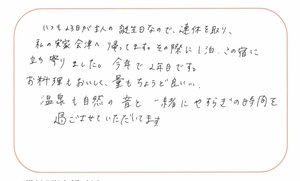 いつも23日が主人の誕生日なので、連休を取り、
私の実家会津へ帰ってます。その際に1泊、この宿に
立ち寄りました。今年で2年目です。
お料理もおいしく、量もちょうど良い、、
温泉も自然の音と一緒にやすらぎの時間を
過ごさせていただいてます